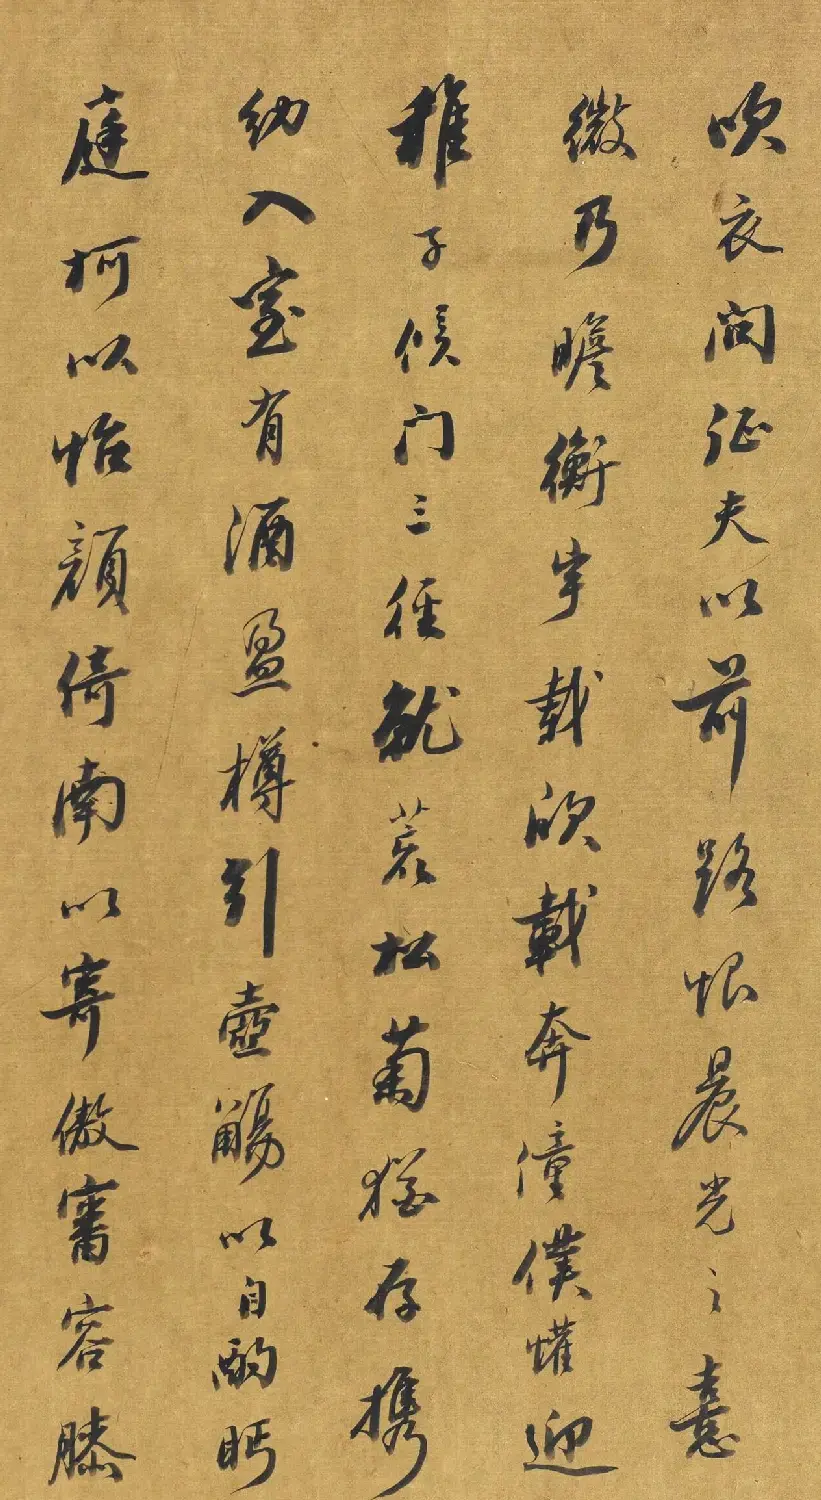 吹衣问征夫以前路恨晨光之熹
微乃瞻衡宇载欣载奔僮仆懽迎
稚子候门三径就荒松菊猶存携
幼入室有酒盈樽引壶觴以自酌眄
庭柯以怡颜倚南以寄傲審容膝